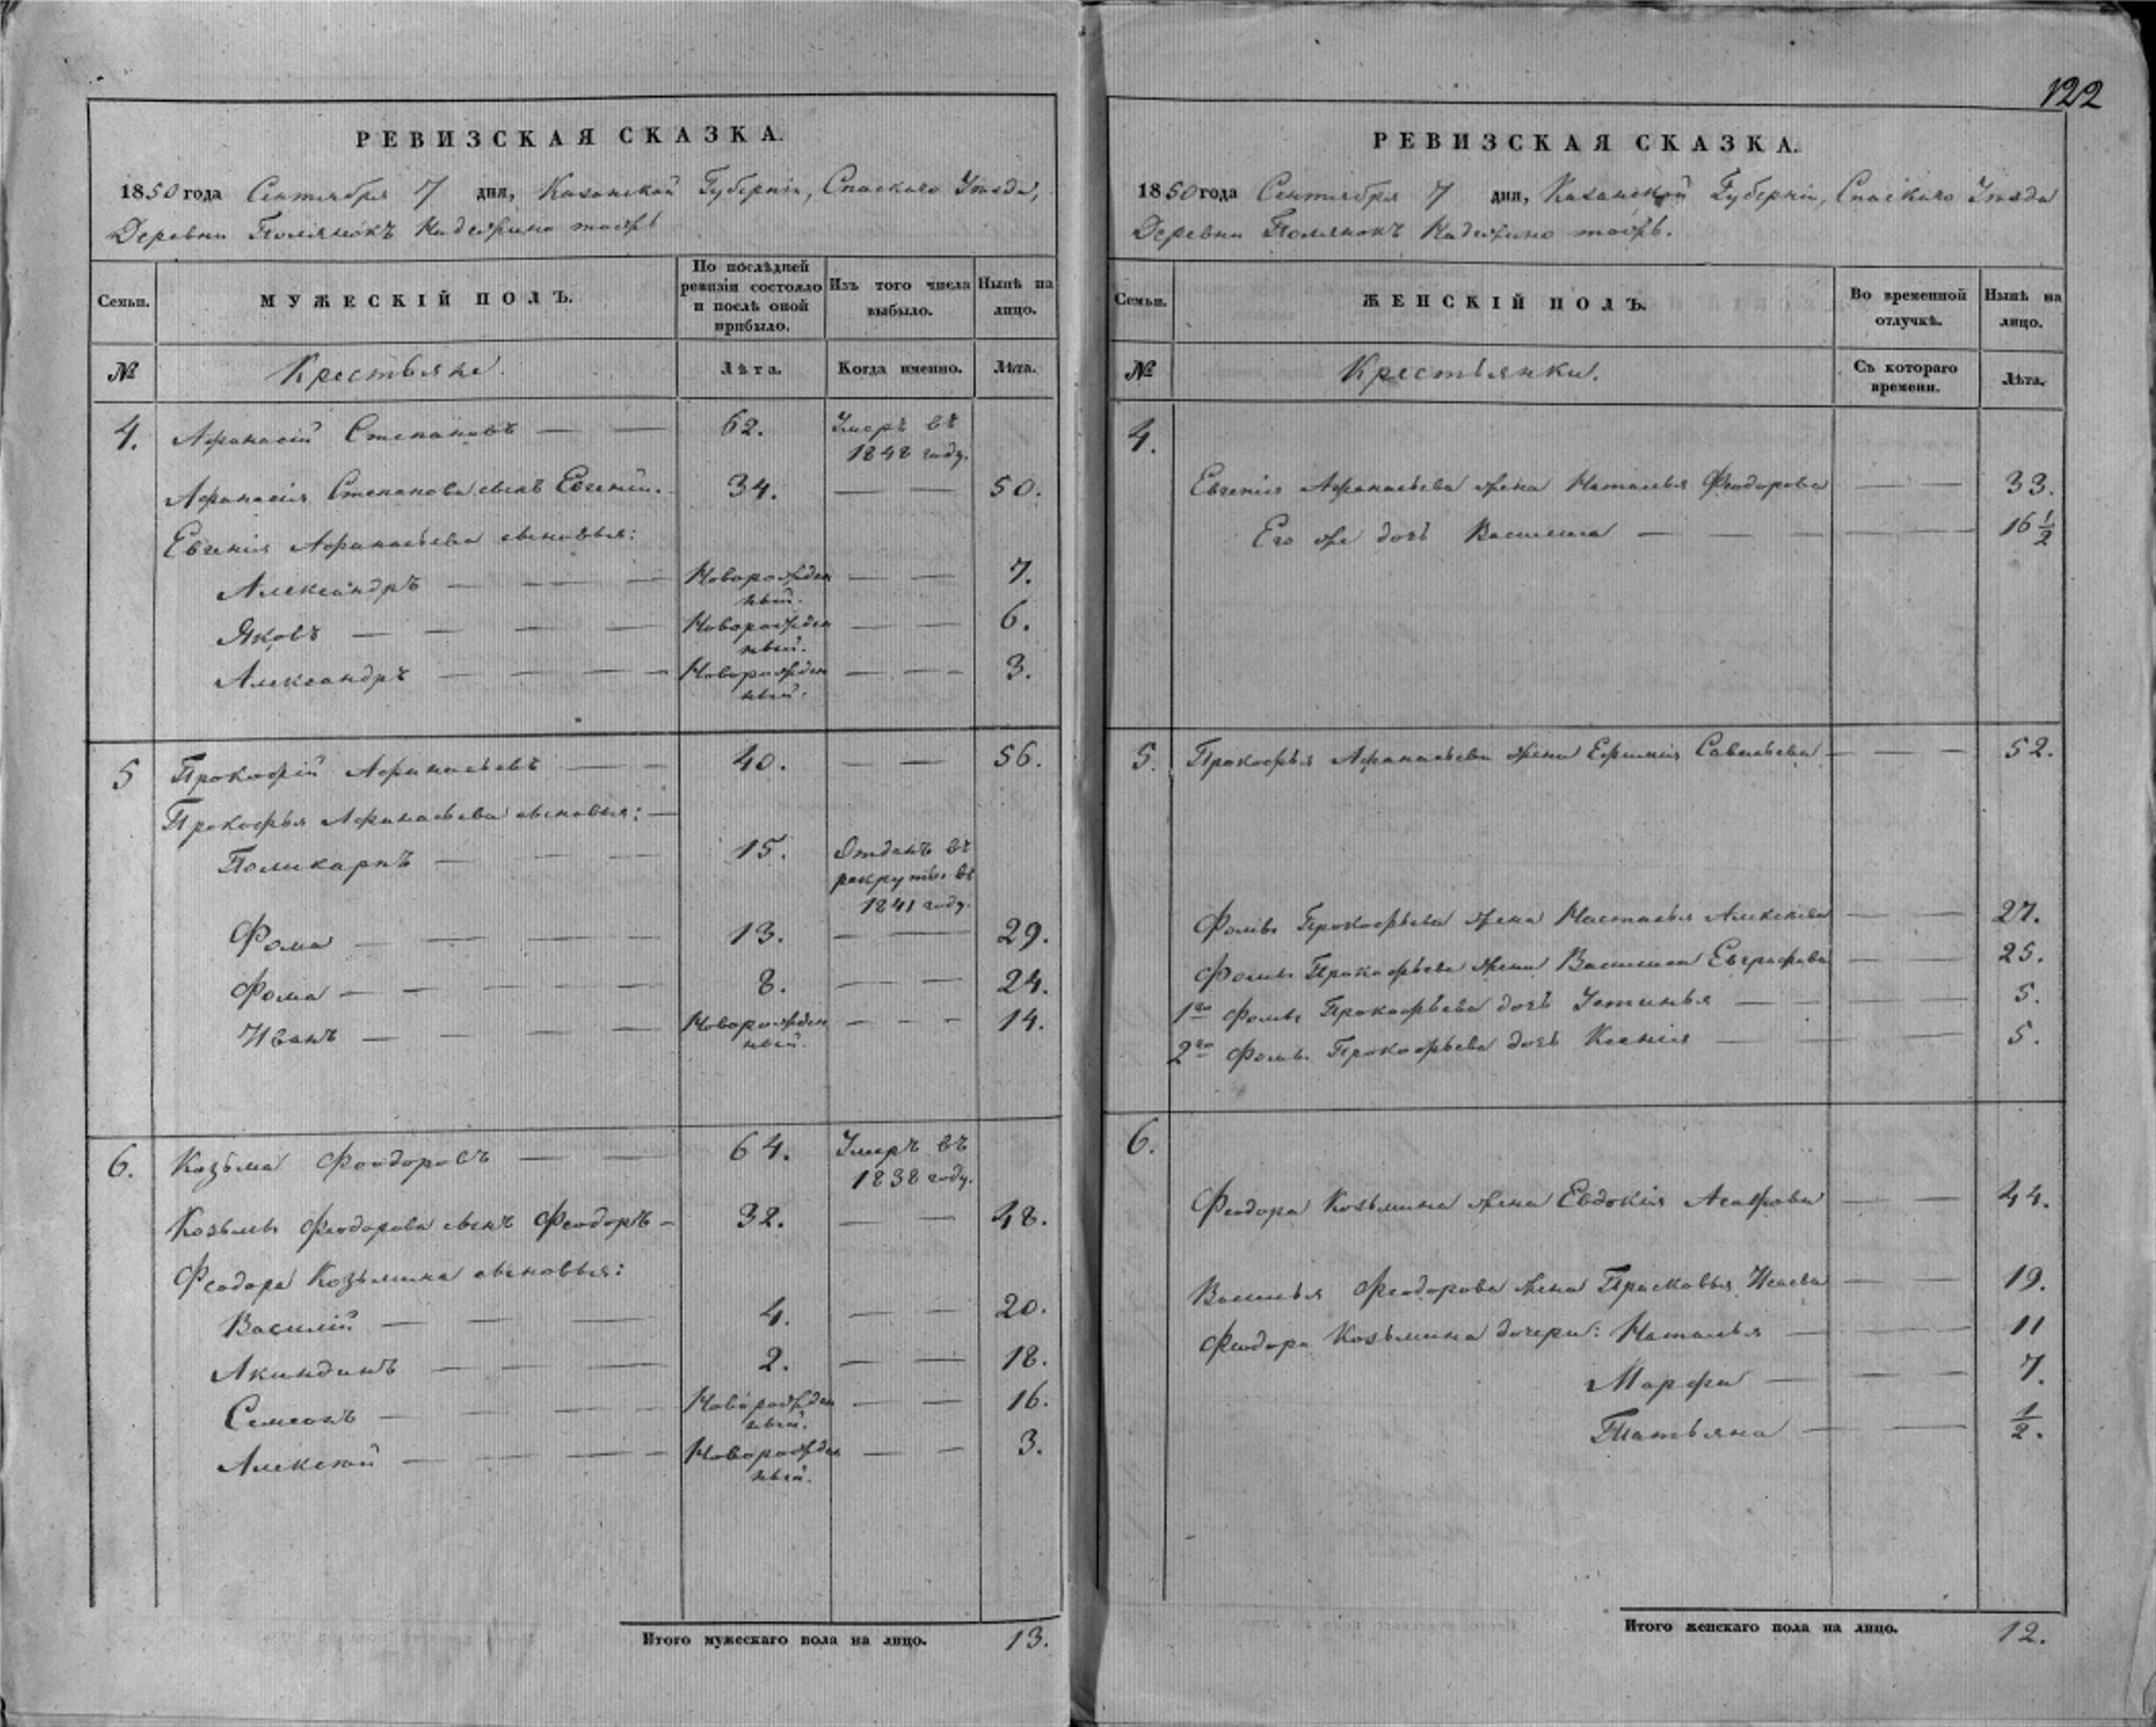 122
РЕВИЗСКАЯ СКАЗКА.
1850 года Сентября 7 дня, Казанской Губернiи, Спаскаго Уѣзда,
Деревни Полянокъ тожъ
Семьи. МУЖЕСКІЙ ПОЛЪ. По послѣдней ревизіи состояло и послѣ оной прибыло. Изъ того числа выбыло. Нынѣ на лицо.
№ Крестьяне. Лѣта. Когда именно. Лѣта.
4. Афанасій Степановъ — — 62. Умеръ въ
1848 году.
Афанасія Степанова сынъ Евгеній. 34. — — 50.
Евгенія Афанасьева сыновья:
Александръ — — — Новорожден — — 7.
ный.
Яковъ — — — — Новорожден — — 6.
ный.
Александръ — — — — Новорожден — — — 3.
ный.
5 Прокофій Афанасьевъ — — 40. — — 56.
Прокофья Афанасьева сыновья: —
Поликарпъ — — — 15. Отданъ въ
рекруты въ
1841 году.
Фома — — — — 13. — — 29.
Фома — — — — — 8. — — 24.
Иванъ — — — — Новорожден — — — 14.
ный.
6. Козьма Феодоровъ — — 64. Умеръ въ
1838 году.
Козьмы Феодорова сынъ Феодоръ — 32. — — 48.
Феодора Козьмина сыновья:
Василій — — — 4. — — 20.
Акиндинъ — — — 2. — — 18.
Семенъ — — — — Новорожден — — 16.
ный.
Алексѣй — — — — Новорожден — — 3.
ный.
Итого мужескаго пола на лицо. 13.
РЕВИЗСКАЯ СКАЗКА.
1850 года Сентября 7 дня, Казанской Губерніи, Спаскаго Уѣзда
Деревни Полянокъ тожъ.
Семьи. ЖЕНСКІЙ ПОЛЪ. Во временной отлучкѣ. Нынѣ на лицо.
№ Крестьянки. Съ котораго времени. Лѣта.
4.
Евгенія Афанасьева жена Наталья Феодорова — — 33.
Его же дочь Василиса — — — — — 16 1/2
5. Прокофья Афанасьева жена Ефимія Савельева — — — 52.
Фомы Прокофьева жена Настасья Алексѣева — — 27.
Фомы Прокофьева жена Василиса Евграфова — — 25.
1го Фомы Прокофьева дочь Устинья — — — — 5.
2го Фомы Прокофьева дочь Ксенія — — — 5.
6.
Феодора Козьмина жена Евдокія — — 44.
Василья Феодорова жена Прасковья Исаева — — 19.
Феодора Козьмина дочери: Наталья — — — 11
Марфа — — — 7.
Татьяна — — 1/2.
Итого женскаго пола на лицо. 12.